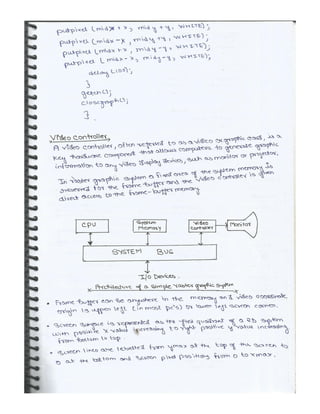 putpixel (midx + x, midy + y, WHITE);
putpixel (midx - x, midy + y, WHITE);
putpixel (midx + x, midy - y, WHITE);
putpixel (midx - x, midy - y, WHITE);
delay (100);
}
getch();
closegraph();
}
Video Controller,
A video controller, often referred to as a video or graphic card, is a
key hardware component that allows computers to generate graphic
information to any video display devices, such as monitor or projector.
In raster graphic system a fixed area of the system memory is
reserved for the frame buffer and the video controller is given
direct access to the frame-buffer memory
CPU
System Memory
Video Controller
Monitor
SYSTEM BUS
I/O Devices.
Architecture of a simple raster graphic system
• Frame buffer can be anywhere in the memory and video coordinate
origin is upper left (in most pc's) or lower left screen corner.
• Screen surface is represented as the first quadrant of a 2D system
with positive x value increasing to right positive y value increasing
from bottom to top.
• Screen lines are labelled from ymax at the top of the screen to
0 at the bottom and screen pixel positions from 0 to xmax.